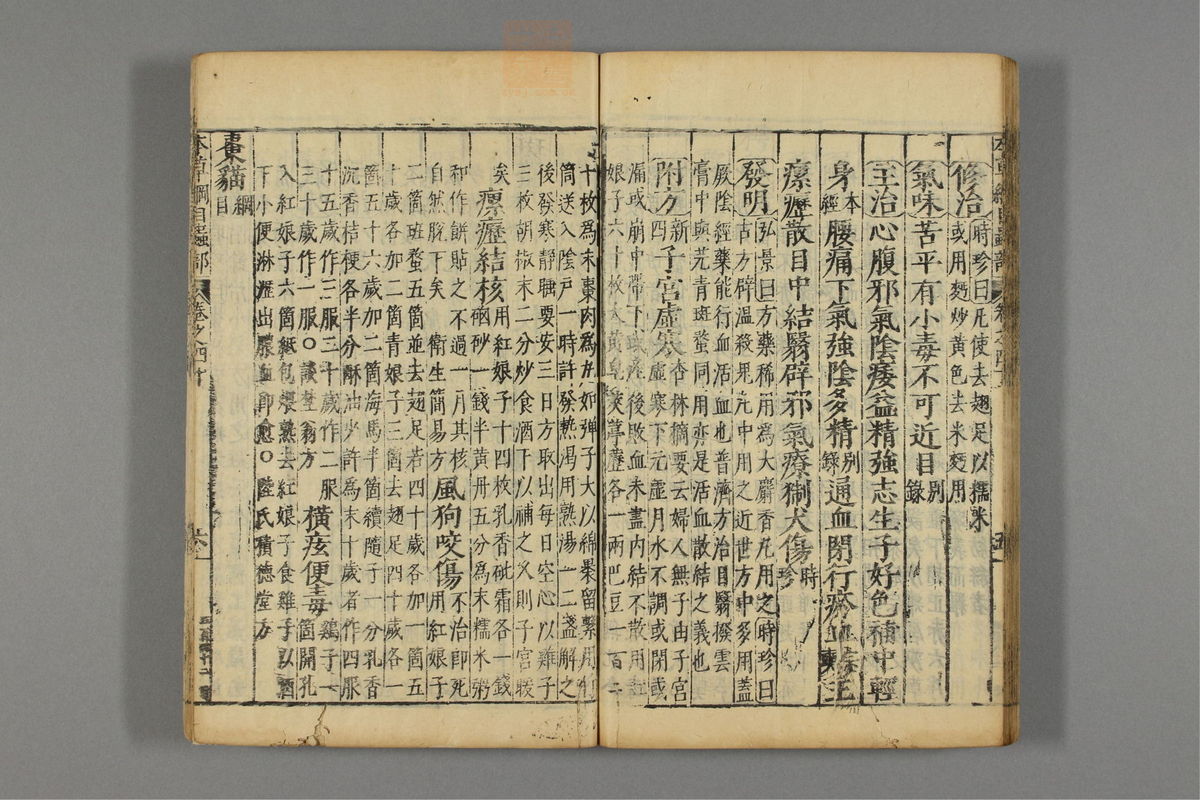 修治時珍曰凡使去翅足以糯米
或用麪炒黃色去米麪用
氣味苦平有小毒不可近目別錄
主治心腹邪氣陰痿益精強志生子好色補中輕
身本經腰痛下氣強陰多精別錄通血閉行瘀血
瘰癧散目中結翳辟邪氣療猘犬傷時珍
發明弘景曰方藥稀用爲大麝香丸用之時珍曰
古方辟溫殺鬼丸中用之近世方中多用蓋
厥陰經藥能行血活血也普濟方治目翳撥雲
膏中與芫青斑蝥同用亦是活血散結之義也
附方新四子宮虛寒杏林摘要云婦人無子由子宮
虛寒下元虛月水不調或閉或
漏或崩中帶下或產後敗血未盡內結不散用
娘子六十枚大黃皂莢葶藶各一兩巴豆一百二
十枚爲末棗肉爲丸如彈子大以綿裹留繫用
筒送入陰戶一時許發熱渴用熟湯一二盞解之
後發寒靜睡要安三日方取出每日空心以雞子
三枚胡椒末二分炒食酒下以補之久則子宮暖
矣瘰癧結核用紅娘子十四枚乳香砒霜各一錢
硇砂一錢半黃丹五分爲末糯米粥
和作餅貼之不過一月其核
自然脫下矣衛生簡易方風狗咬傷不治卽死
用紅娘子
二箇斑蝥五箇並去翅足若四十歲各加一箇五
十歲各加二箇青娘子三箇去翅足四十歲各一
箇五十六歲加二箇海馬半箇續隨子一分乳香
沉香桔梗各半分酥油少許爲末十歲者作四服
十五歲作三服二十歲作二服
三十歲作一服○談埜翁方橫痃便毒雞子一
箇開孔
入紅娘子六箇紙包煨熟去紅娘子食雞子以酒
下小便淋瀝出膿血卽愈○陸氏積德堂方
棗貓綱目
本草綱目蟲部
卷之四十
六